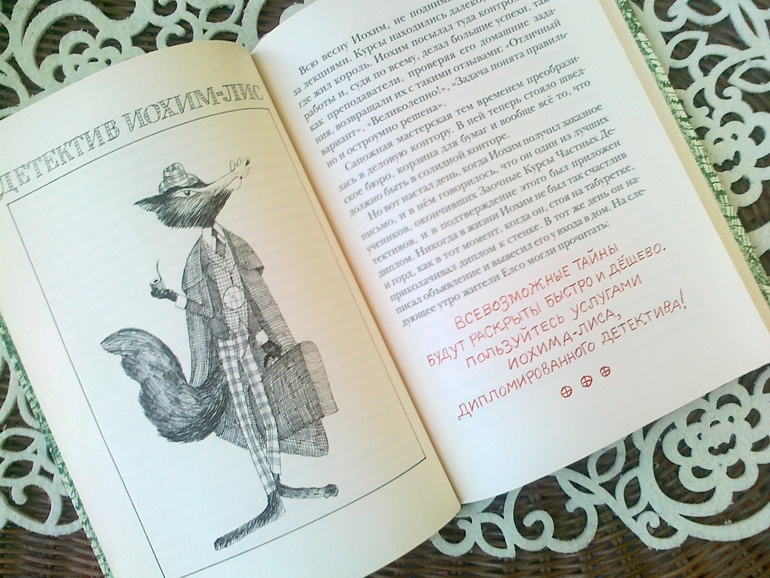 ДЕТЕКТИВ ИОХИМ-ЛИС
Всю весну Иохим, не поднима
за лекциями. Курсы находились далеко
где жил король. Иохим посылал туда контрол
работы и, судя по всему, делал большие успехи, так
как преподаватели, проверяя его домашние зада-
ния, возвращали их с такими отзывами: «Отличный
вариант», «Великолепно!», «Задача понята правиль-
но и остроумно решена».
Сапожная мастерская тем временем преобрази-
лась в деловую контору. В ней теперь стояло швед-
ское бюро, корзина для бумаг и вообще всё то, что
должно быть в солидной конторе.
Но вот настал день, когда Иохим получил заказное
письмо, и в нём говорилось, что он один из лучших
учеников, окончивших Заочные Курсы Частных Де-
тективов, и в подтверждение этого был приложен
диплом. Никогда в жизни Иохим не был так счастлив
и горд, как в тот момент, когда он, стоя на табуретке,
приколачивал диплом к стенке. В тот же день он на-
писал объявление и вывесил его у входа в дом. На сле-
дующее утро жители Елсо могли прочитать:
ВСЕВОЗМОЖНЫЕ ТАЙНЫ
БУДУТ РАСКРЫТЫ БЫСТРО И ДЁШЕВО.
ПОЛЬЗУЙТЕСЬ УСЛУГАМИ
ИОХИМА-ЛИСА,
ДИПЛОМИРОВАННОГО ДЕТЕКТИВА!